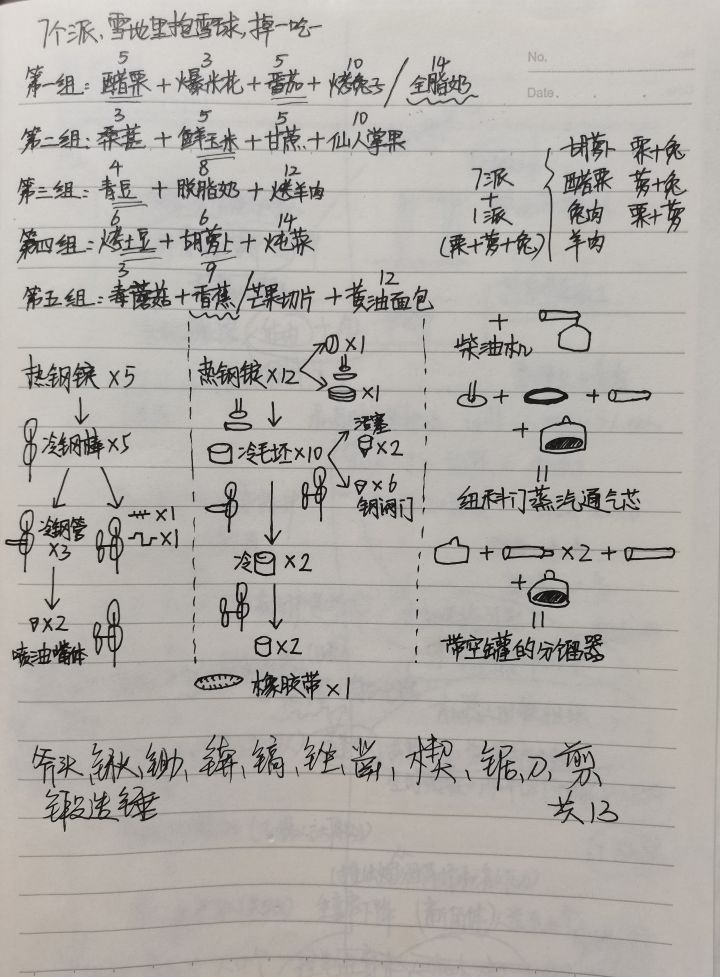 7个派、雪地里抱雪球,掉一吃一
No.
Date.
5 3 5 10 14
第一组:醋栗+爆米花+番茄+烤兔子/全脂奶
3 5 5 10
第二组:桑葚+鲜玉米+甘蔗+仙人掌果
4 8 12
第三组:青豆+脱脂奶+烤羊肉
6 6 14
第四组:烤土豆+胡萝卜+炖菜
3 9 12
第五组:毒蘑菇+香蕉/芒果切片+黄油面包
7派
+
1派
(栗+萝+兔)
胡萝卜 栗+兔
醋栗 萝+兔
兔肉 栗+萝
羊肉
热钢锭×5
冷钢棒×5
冷钢管
×3
×1
×1
×2
喷油嘴体
热钢锭×12
×1
×1
冷毛坯×10
活塞
×2
×6
钥阀门
冷 ×2
×2
橡胶带×1
+
柴油机
+ +
+
=
纽科门蒸汽通气芯
+ ×2 +
+
=
带空罐的分馏器
斧头、锹、锄、镐、凿、楔、锯、刀、剪、
锻造锤 共13